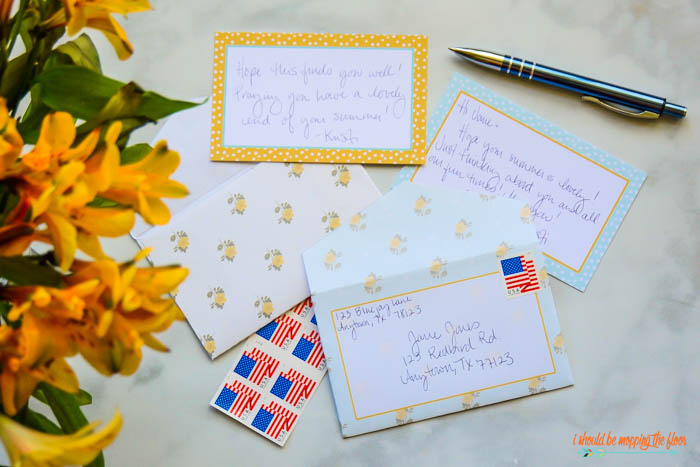 Hope this finds you well!
Praying you have a lovely
end of your summer!
-Kristi
Hi Jane-
Hope your summer is lovely!
Just thinking about you and all
our fun times! you!
123 Bluejay Lane
Anytown, TX 78123
Jane Jones
123 Redbird Rd
Anytown, TX 77123
USA
i should be mopping the floor